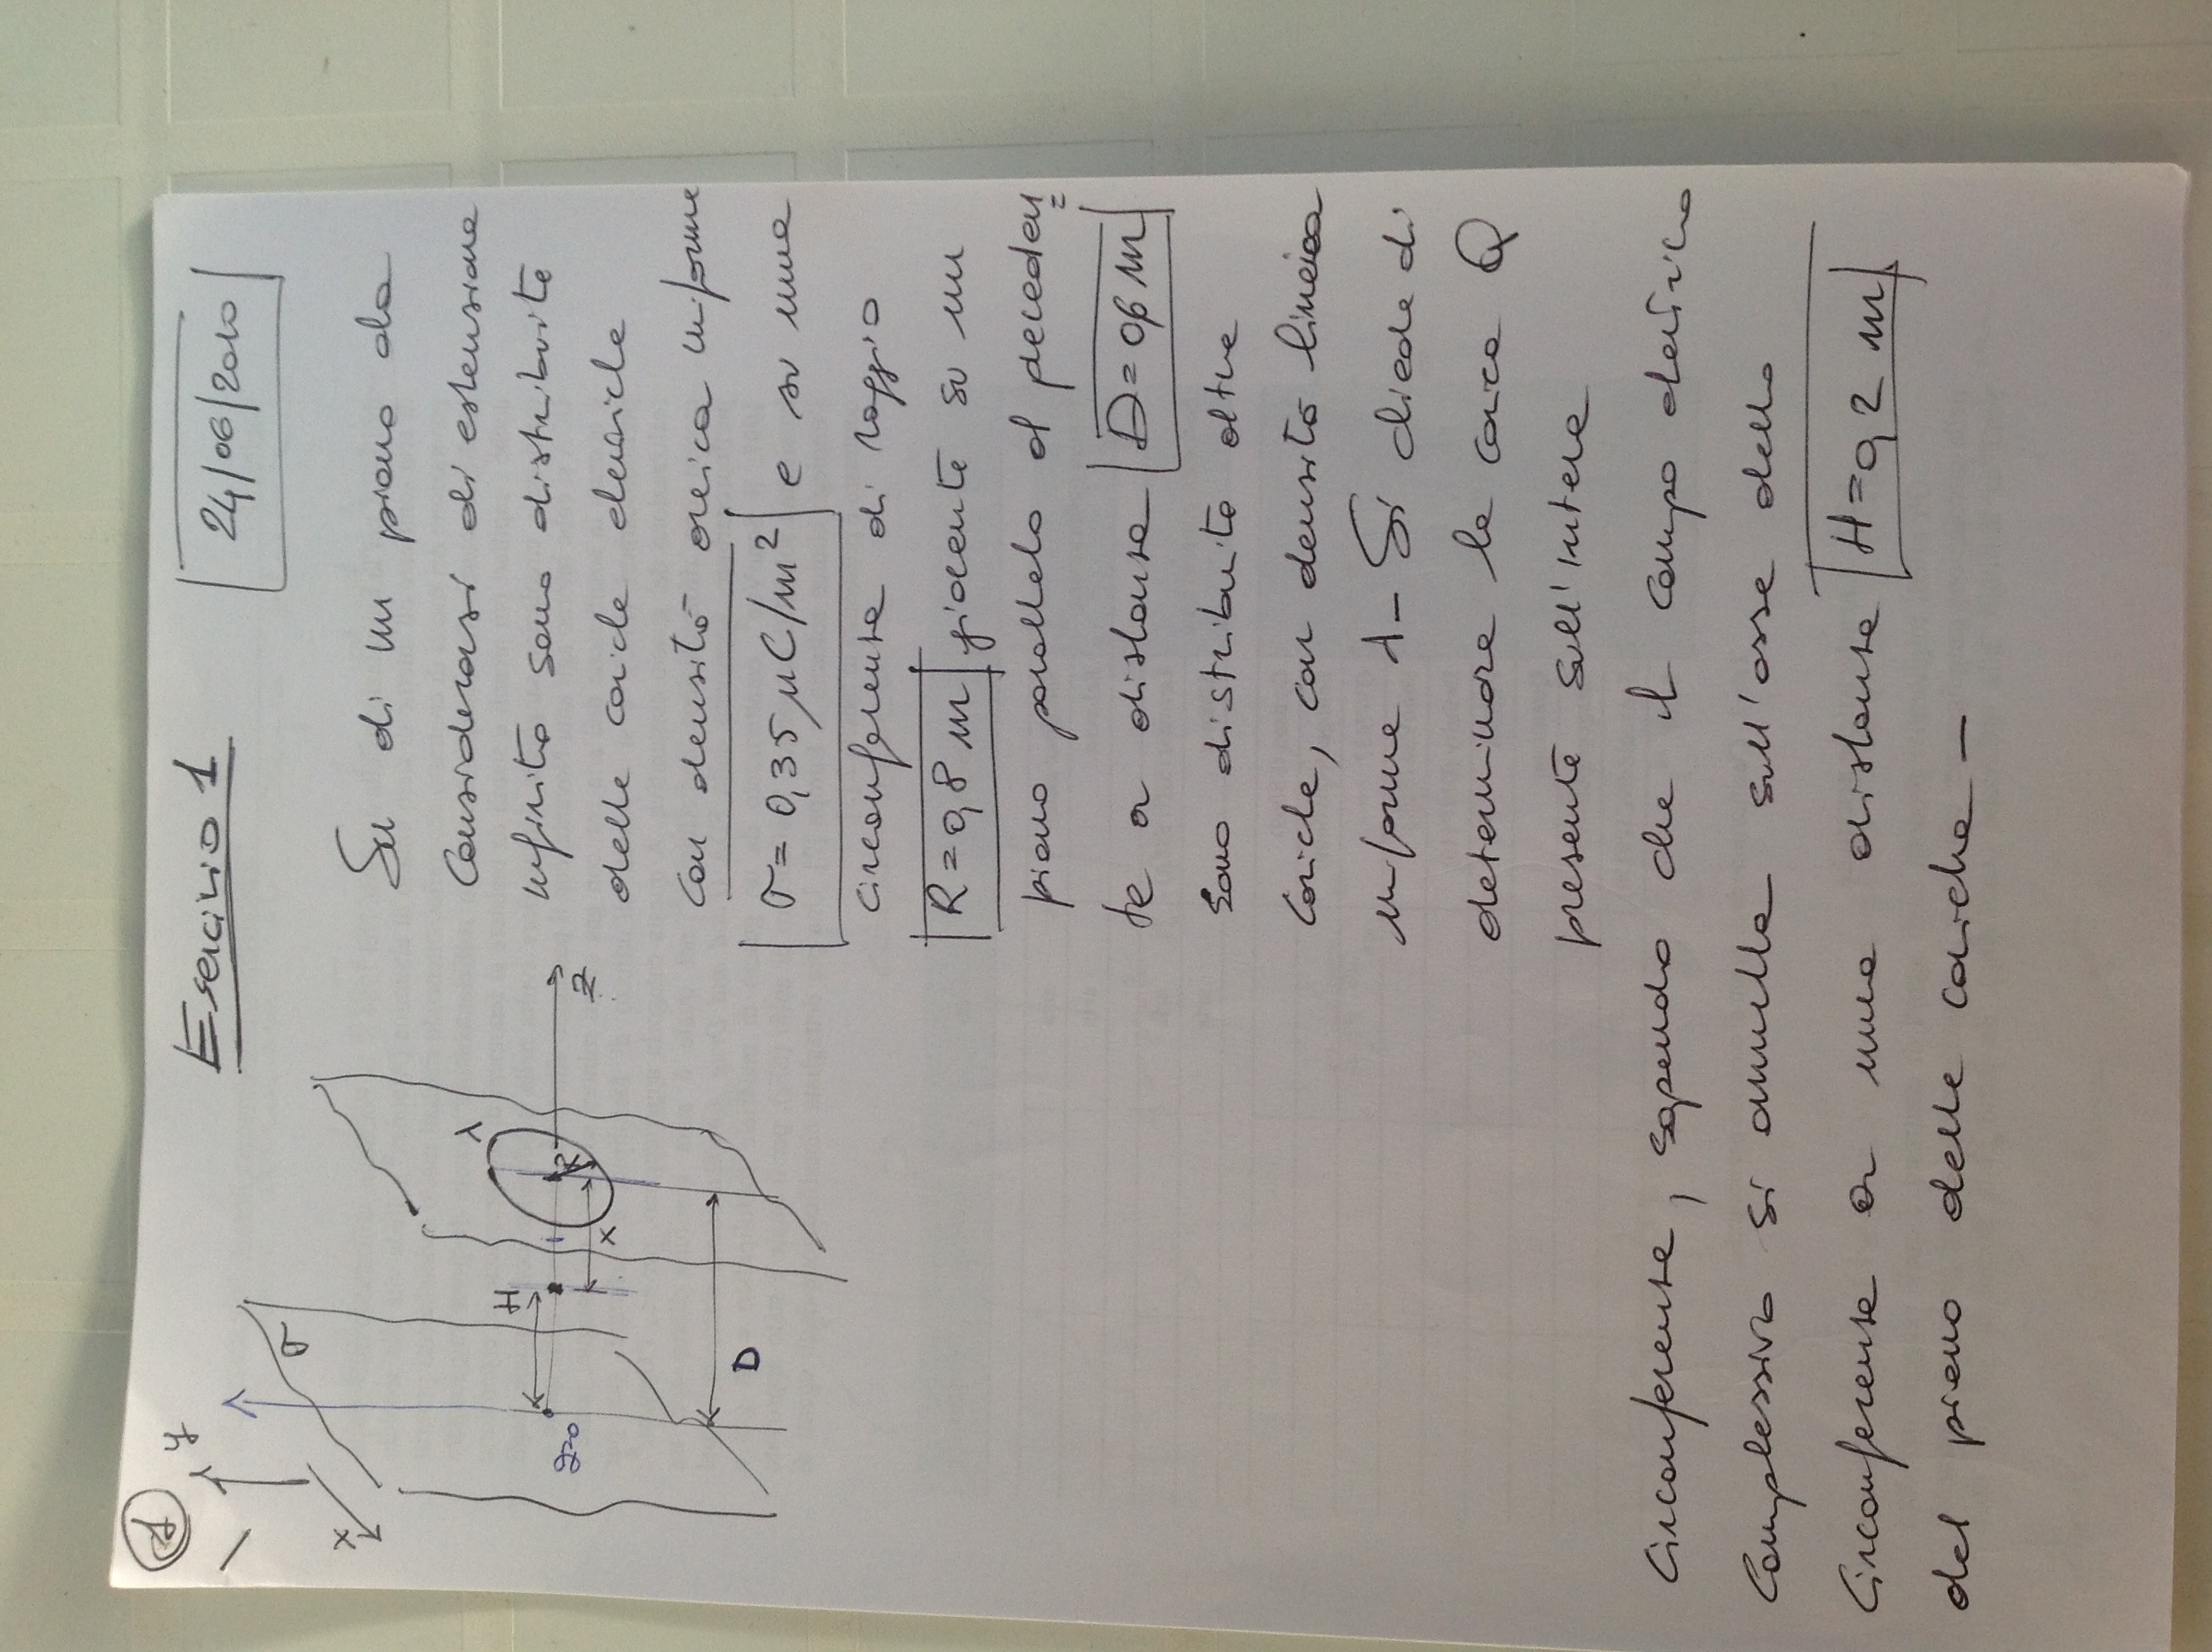 1
y
Esercizio 1
24/06/2010
σ
x
Su di un piano da
considerarsi di estensione
λ
H
infinita sono distribuite
z=0
R
z
x
delle cariche elettriche
con densità areica uniforme
D
σ = 0,35 μC/m² e su una
circonferenza di raggio
R = 0,8 m giacente su un
piano parallelo al preceden=
te a distanza D = 0,6 m
sono distribuite altre
cariche, con densità lineica
uniforme λ - Si chiede di
determinare la carica Q
presente sull'intera
circonferenza, sapendo che il campo elettrico
complessivo si annulla sull'asse della
circonferenza a una distanza H = 0,2 m
dal piano delle cariche -